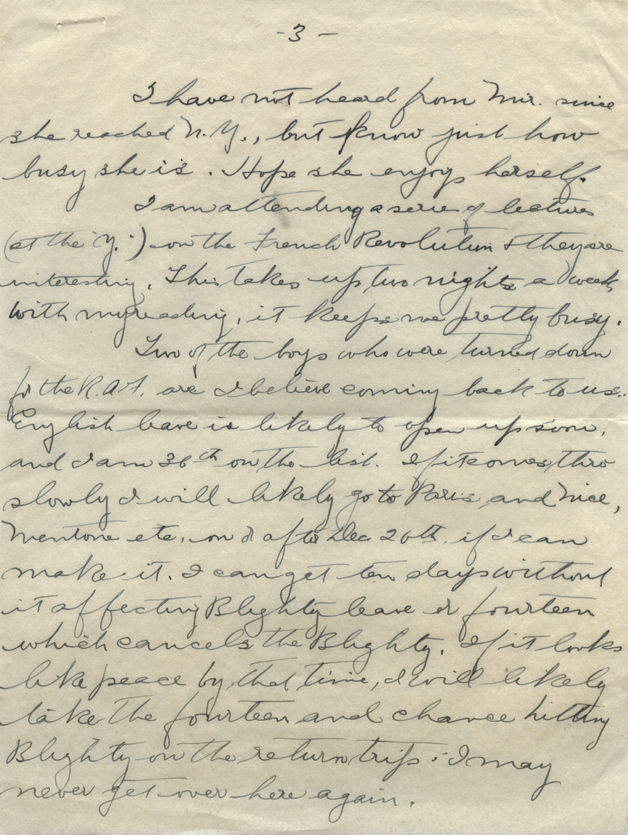 -3-
I have not heard from Mir. since
she reached N.Y., but know just how
busy she is. Hope she enjoys herself.
I am attending a series of lectures
(at the "Y.") on the French Revolution & they are
interesting. This takes up two nights a week,
with my reading, it keeps me pretty busy.
Two of the boys who were turned down
for the R.A.F. are I believe coming back to us.
English leave is likely to open up soon,
and I am 36th on the list. If it comes thro
slowly I will likely go to Paris and Nice,
Mentone etc. on or after Dec 20th if I can
make it. I can get ten days without
it affecting Blighty leave or fourteen
which cancels the Blighty. If it looks
like peace by that time, I will likely
take the fourteen and chance hitting
Blighty on the return trip. I may
never get over here again.